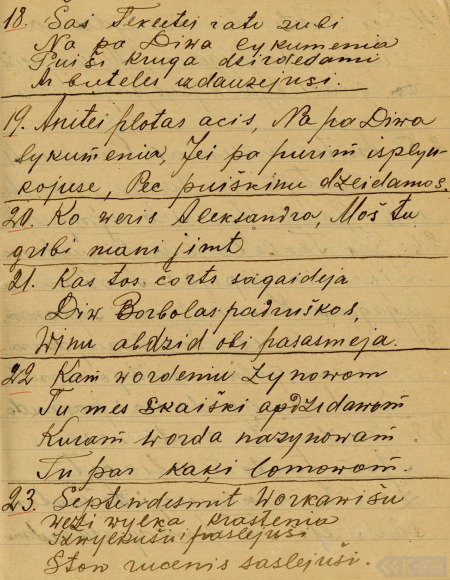 18. Šai Tekeitei rati zubi
Na pa Diwa lykumenia
Puiši kruga dzirdedami
Ar buteles izdauzejuši.
19. Anitei plotas acis, Na pa Diwa
lykumenia, Jei pa purim isplyu-
kojuse, Pec puiškinu dzeidamos.
20. Ko weris Aleksandra, Moš tu
gribi mani jimt
21. Kas tos čorts sagaideja
Diw Borbolas padruškos,
Winu abdzid obi pasasmeja.
22 Kam wordeniu zynowom
Tu mes skaiški apdzidawom
Kuram worda nazynowam
Tu par kaķi lomowom.
23. Septendesmit Workawišu
weži wylka krastenia
Izwylkuši paslejuši
Stow rucenis saslejuši.